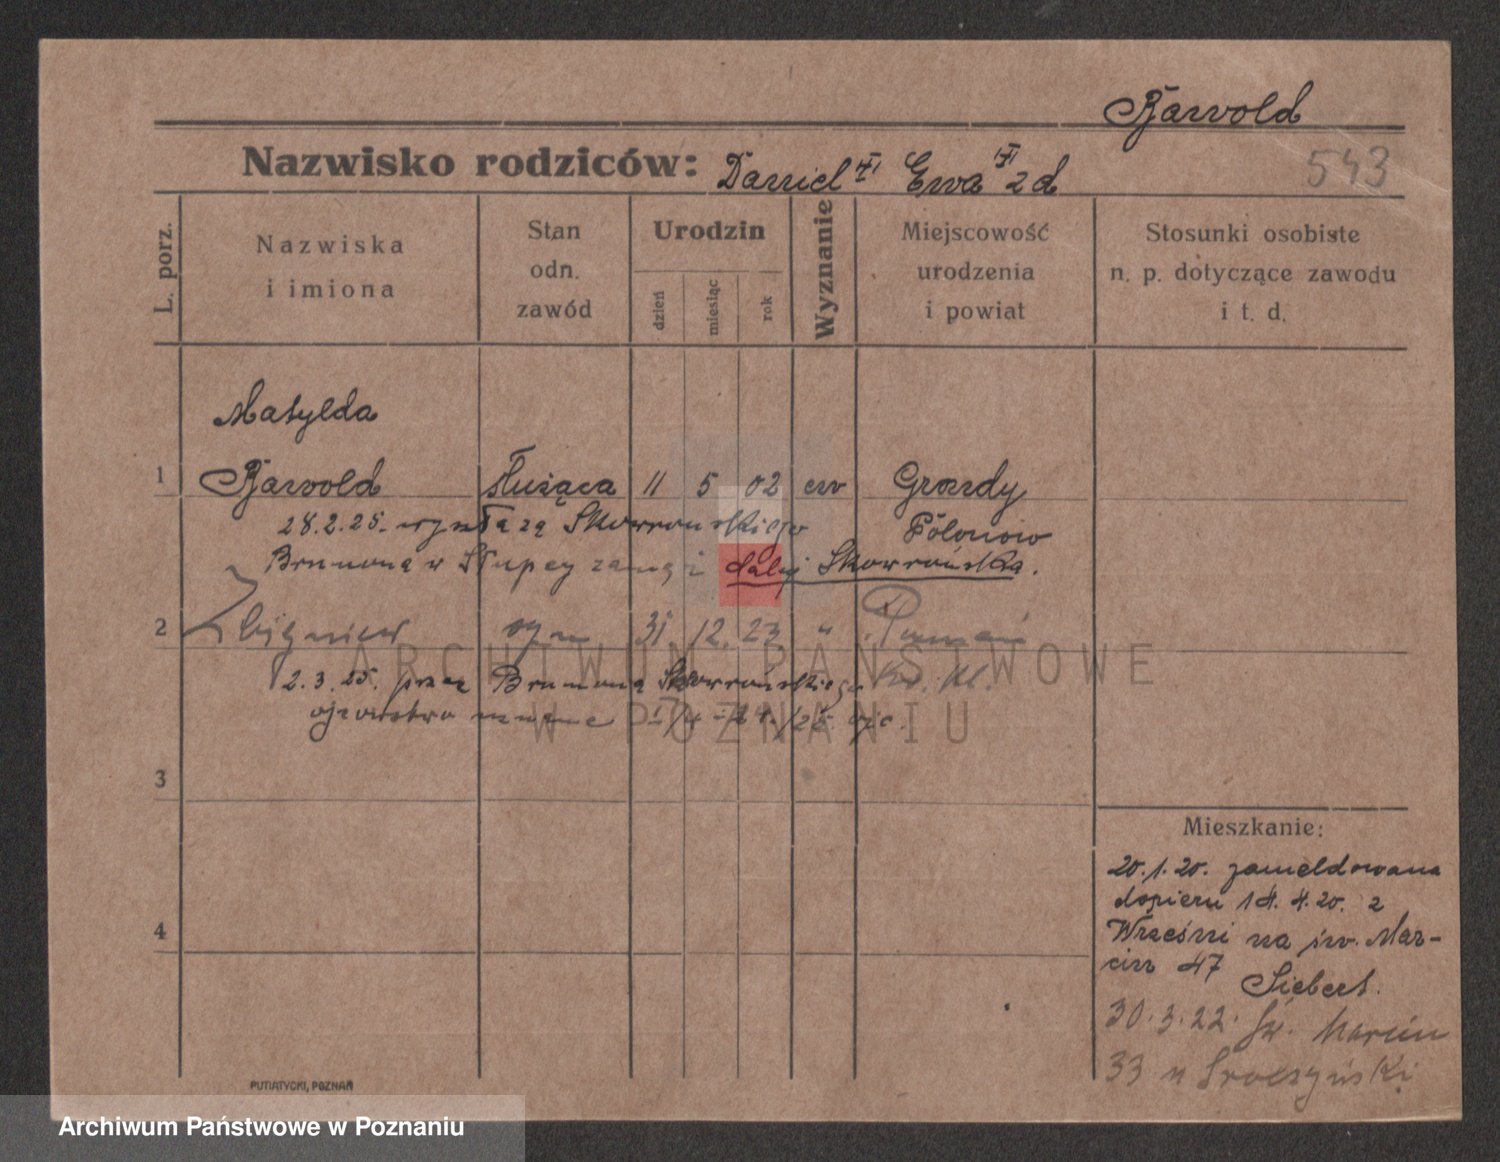 Barvold
Nazwisko rodziców: Daniel Ewa z d
543
L. porz.
Nazwiska
i imiona
Stan
odn.
zawód
Urodzin
dzień
miesiąc
rok
Wyznanie
Miejscowość
urodzenia
i powiat
Stosunki osobiste
n. p. dotyczące zawodu
i t. d.
Matylda
1 Barvold służąca 11 5 02 ew
28.2.25. wyszła za Skowrońskiego
Brunona w Słupcy zamąż i dalej Skowrońska.
2 Zbigniew syn 31 12. 23 " Poznań
2.3.25. przez Brunona Skowrońskiego
ojcowstwo uznane
3
4
Mieszkanie:
20.1.20. zameldowana
dopieru 14.4.20. z
Wrześni na św. Mar-
cin 47
Siebert.
30.3.22. Św. Marcin
33 u
PUTIATYCKI, POZNAŃ
ARCHIWUM PAŃSTWOWE
W POZNANIU
Archiwum Państwowe w Poznaniu